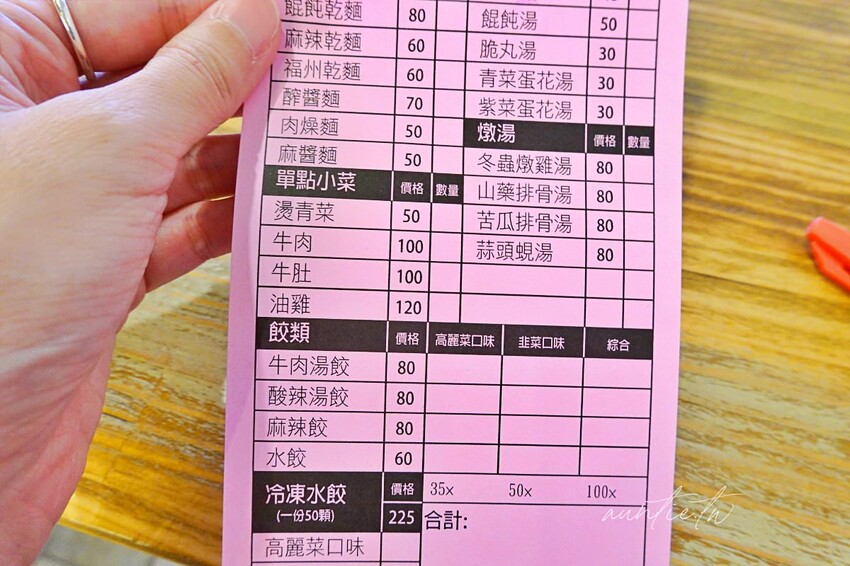 餛飩乾麵 80
麻辣乾麵 60
福州乾麵 60
醡醬麵 70
肉燥麵 50
麻醬麵 50
單點小菜 價格 數量
燙青菜 50
牛肉 100
牛肚 100
油雞 120
餛飩湯 50
脆丸湯 30
青菜蛋花湯 30
紫菜蛋花湯 30
燉湯 價格 數量
冬蟲燉雞湯 80
山藥排骨湯 80
苦瓜排骨湯 80
蒜頭蜆湯 80
餃類 價格 高麗菜口味 韭菜口味 綜合
牛肉湯餃 80
酸辣湯餃 80
麻辣餃 80
水餃 60
冷凍水餃 價格
(一份50顆) 225
高麗菜口味
35x 50x 100x
合計:
auntie.tw